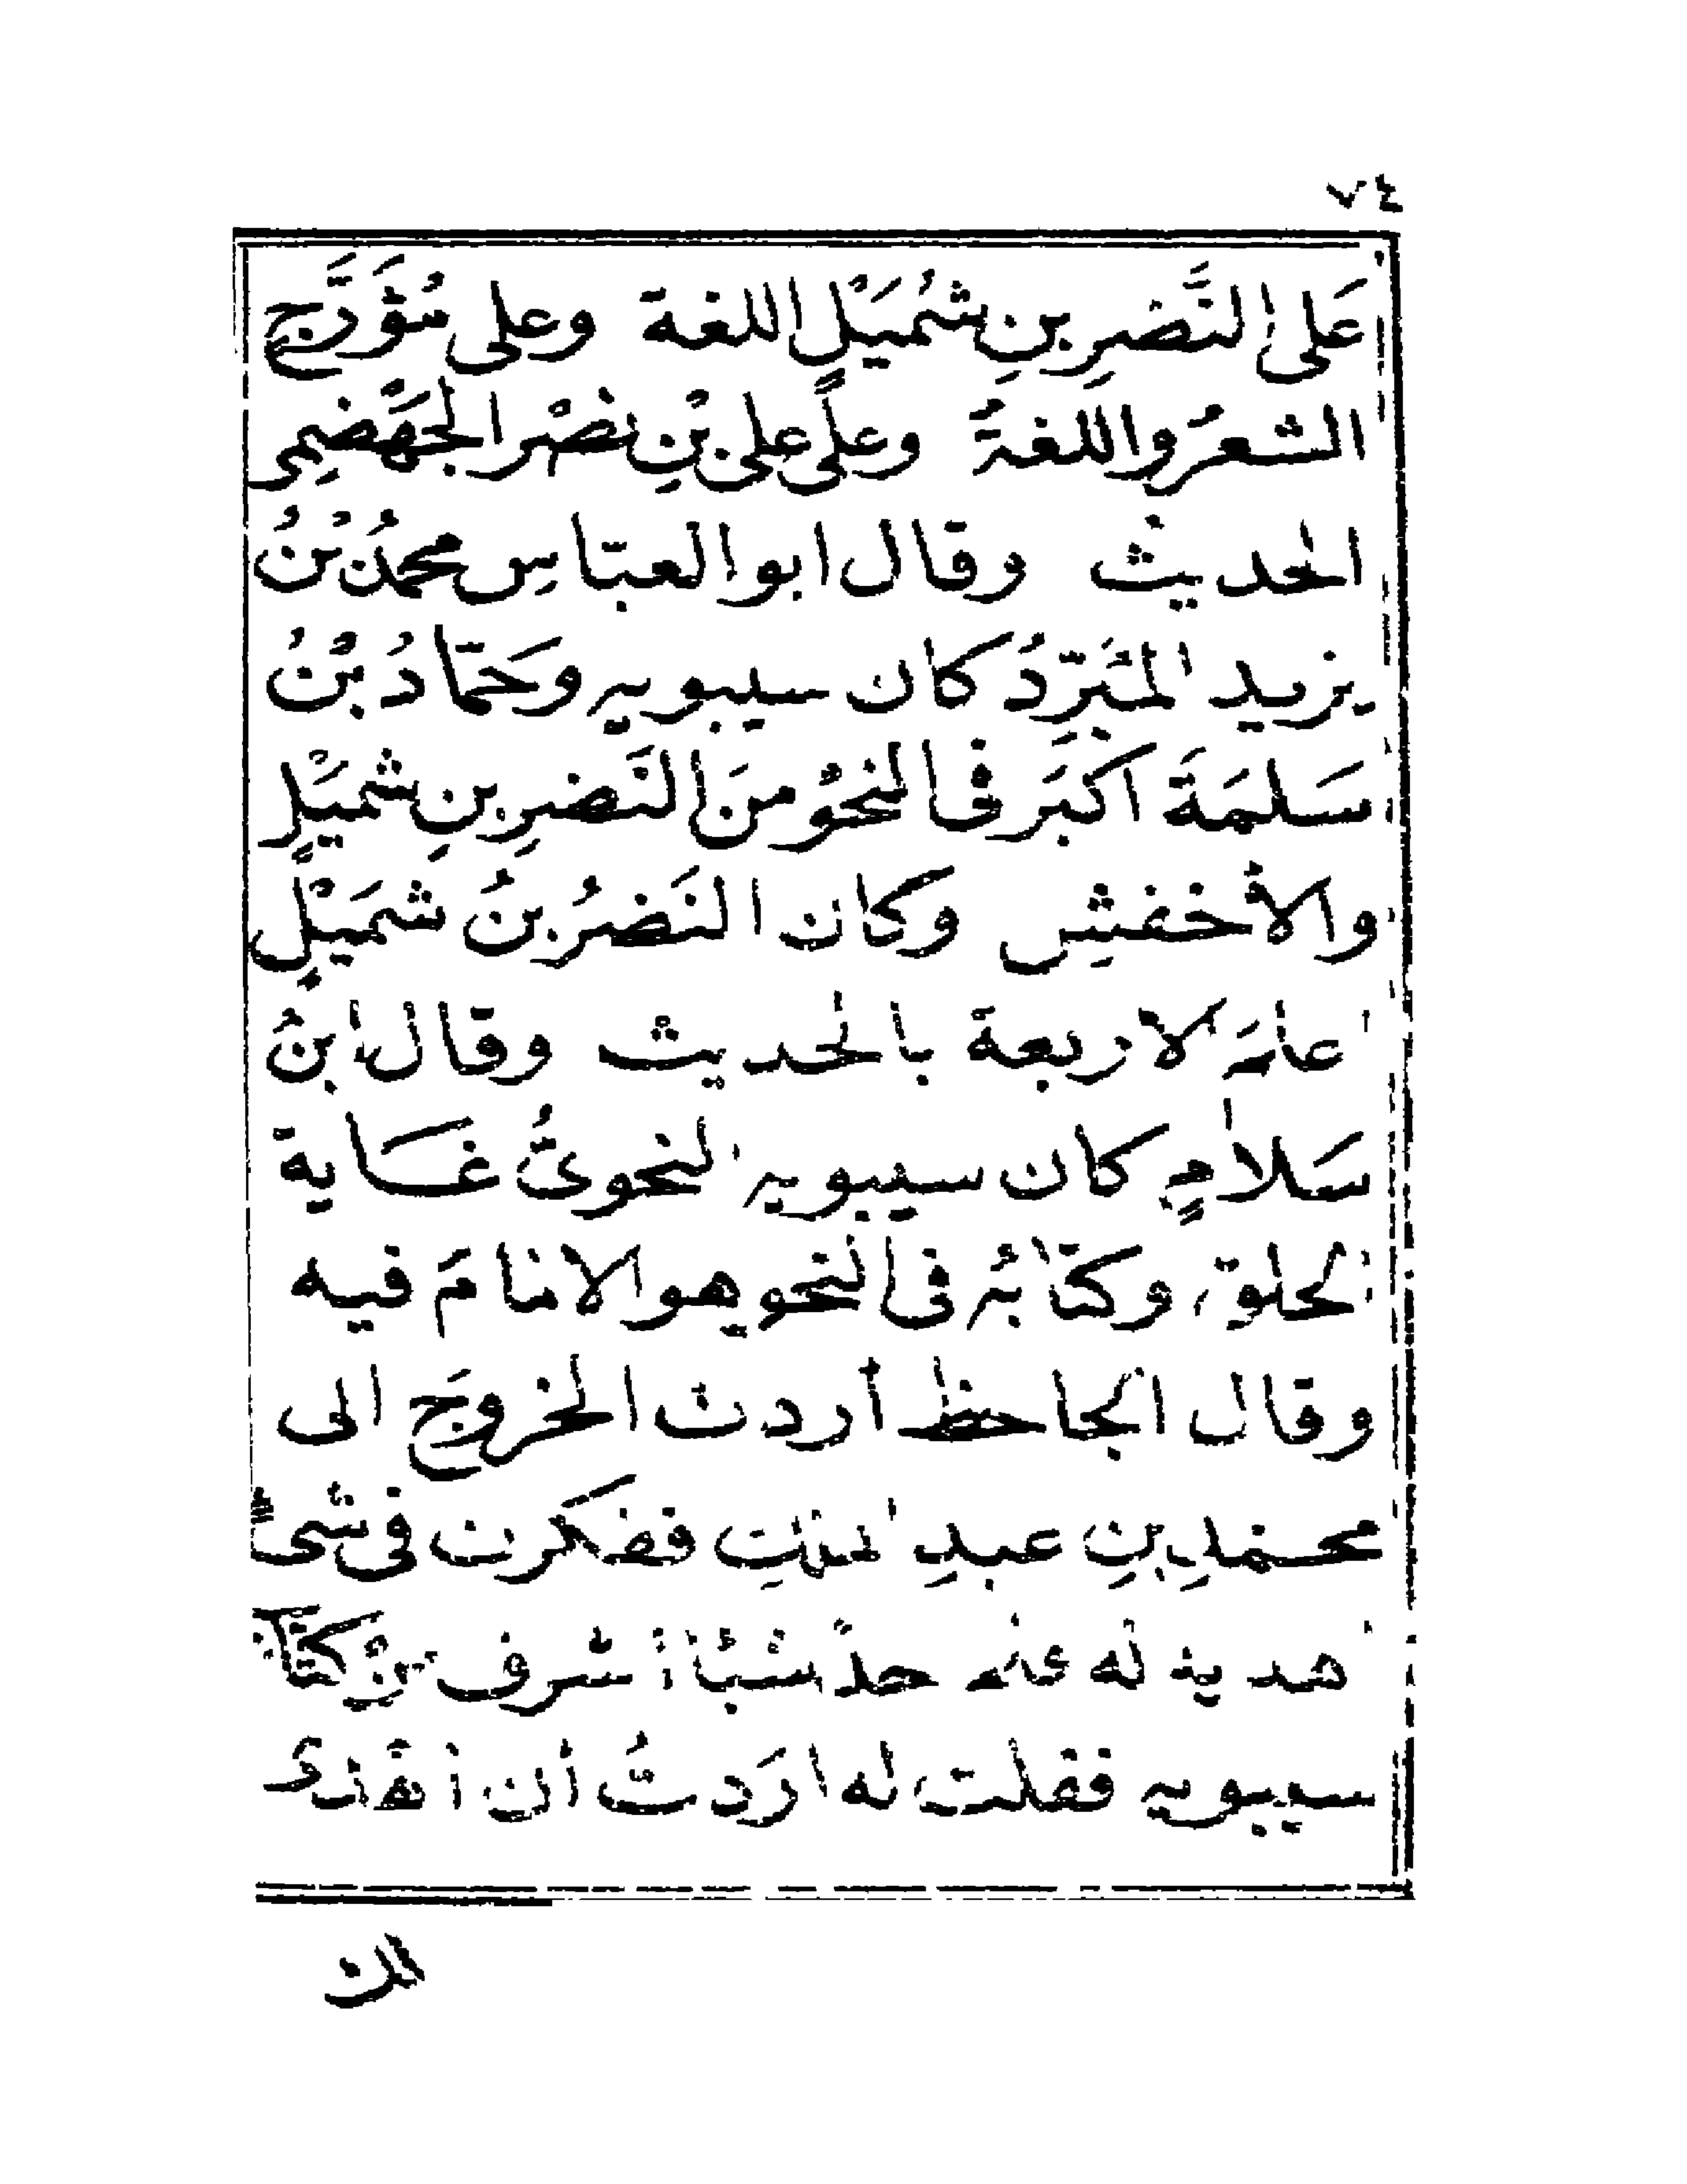 ٧٤
عَلى النَّضرِ بنِ شُمَيْلٍ اللغة وعلى مُؤَرَّج
الشعرُ واللغةُ وعلى علىِ بْنِ نصْر الجَهْضَمِى
الحديثُ وقال ابو العبّاسِ محمدُ بْنُ
يزيد المُبَرِّدُ كان سيبويه وحَمّادُ بْنُ
سَلَمَةَ اكبَر فى النحوُ منَ النَضرِ بنِ شميَلٍ
والأخفشِ وكان النَضرُ بنُ شمَيْلٍ
اعلمَ الاربعة بالحديث وقال ابنُ
سَلامٍ كان سيبويه النحوىُّ غاية
الخلق وكتابُه فى النحو هو الامامَ فيه
وقال الجاحظ أردت الخروجَ الى
محمدِ بنِ عبدِ الملكِ ففكرت فى شىءٍ
اهديه له فلم اجدْ شيئًا اشرف منْ كتاب
سيبويه فقلت له ارَدتُ أن اهْدى
لك